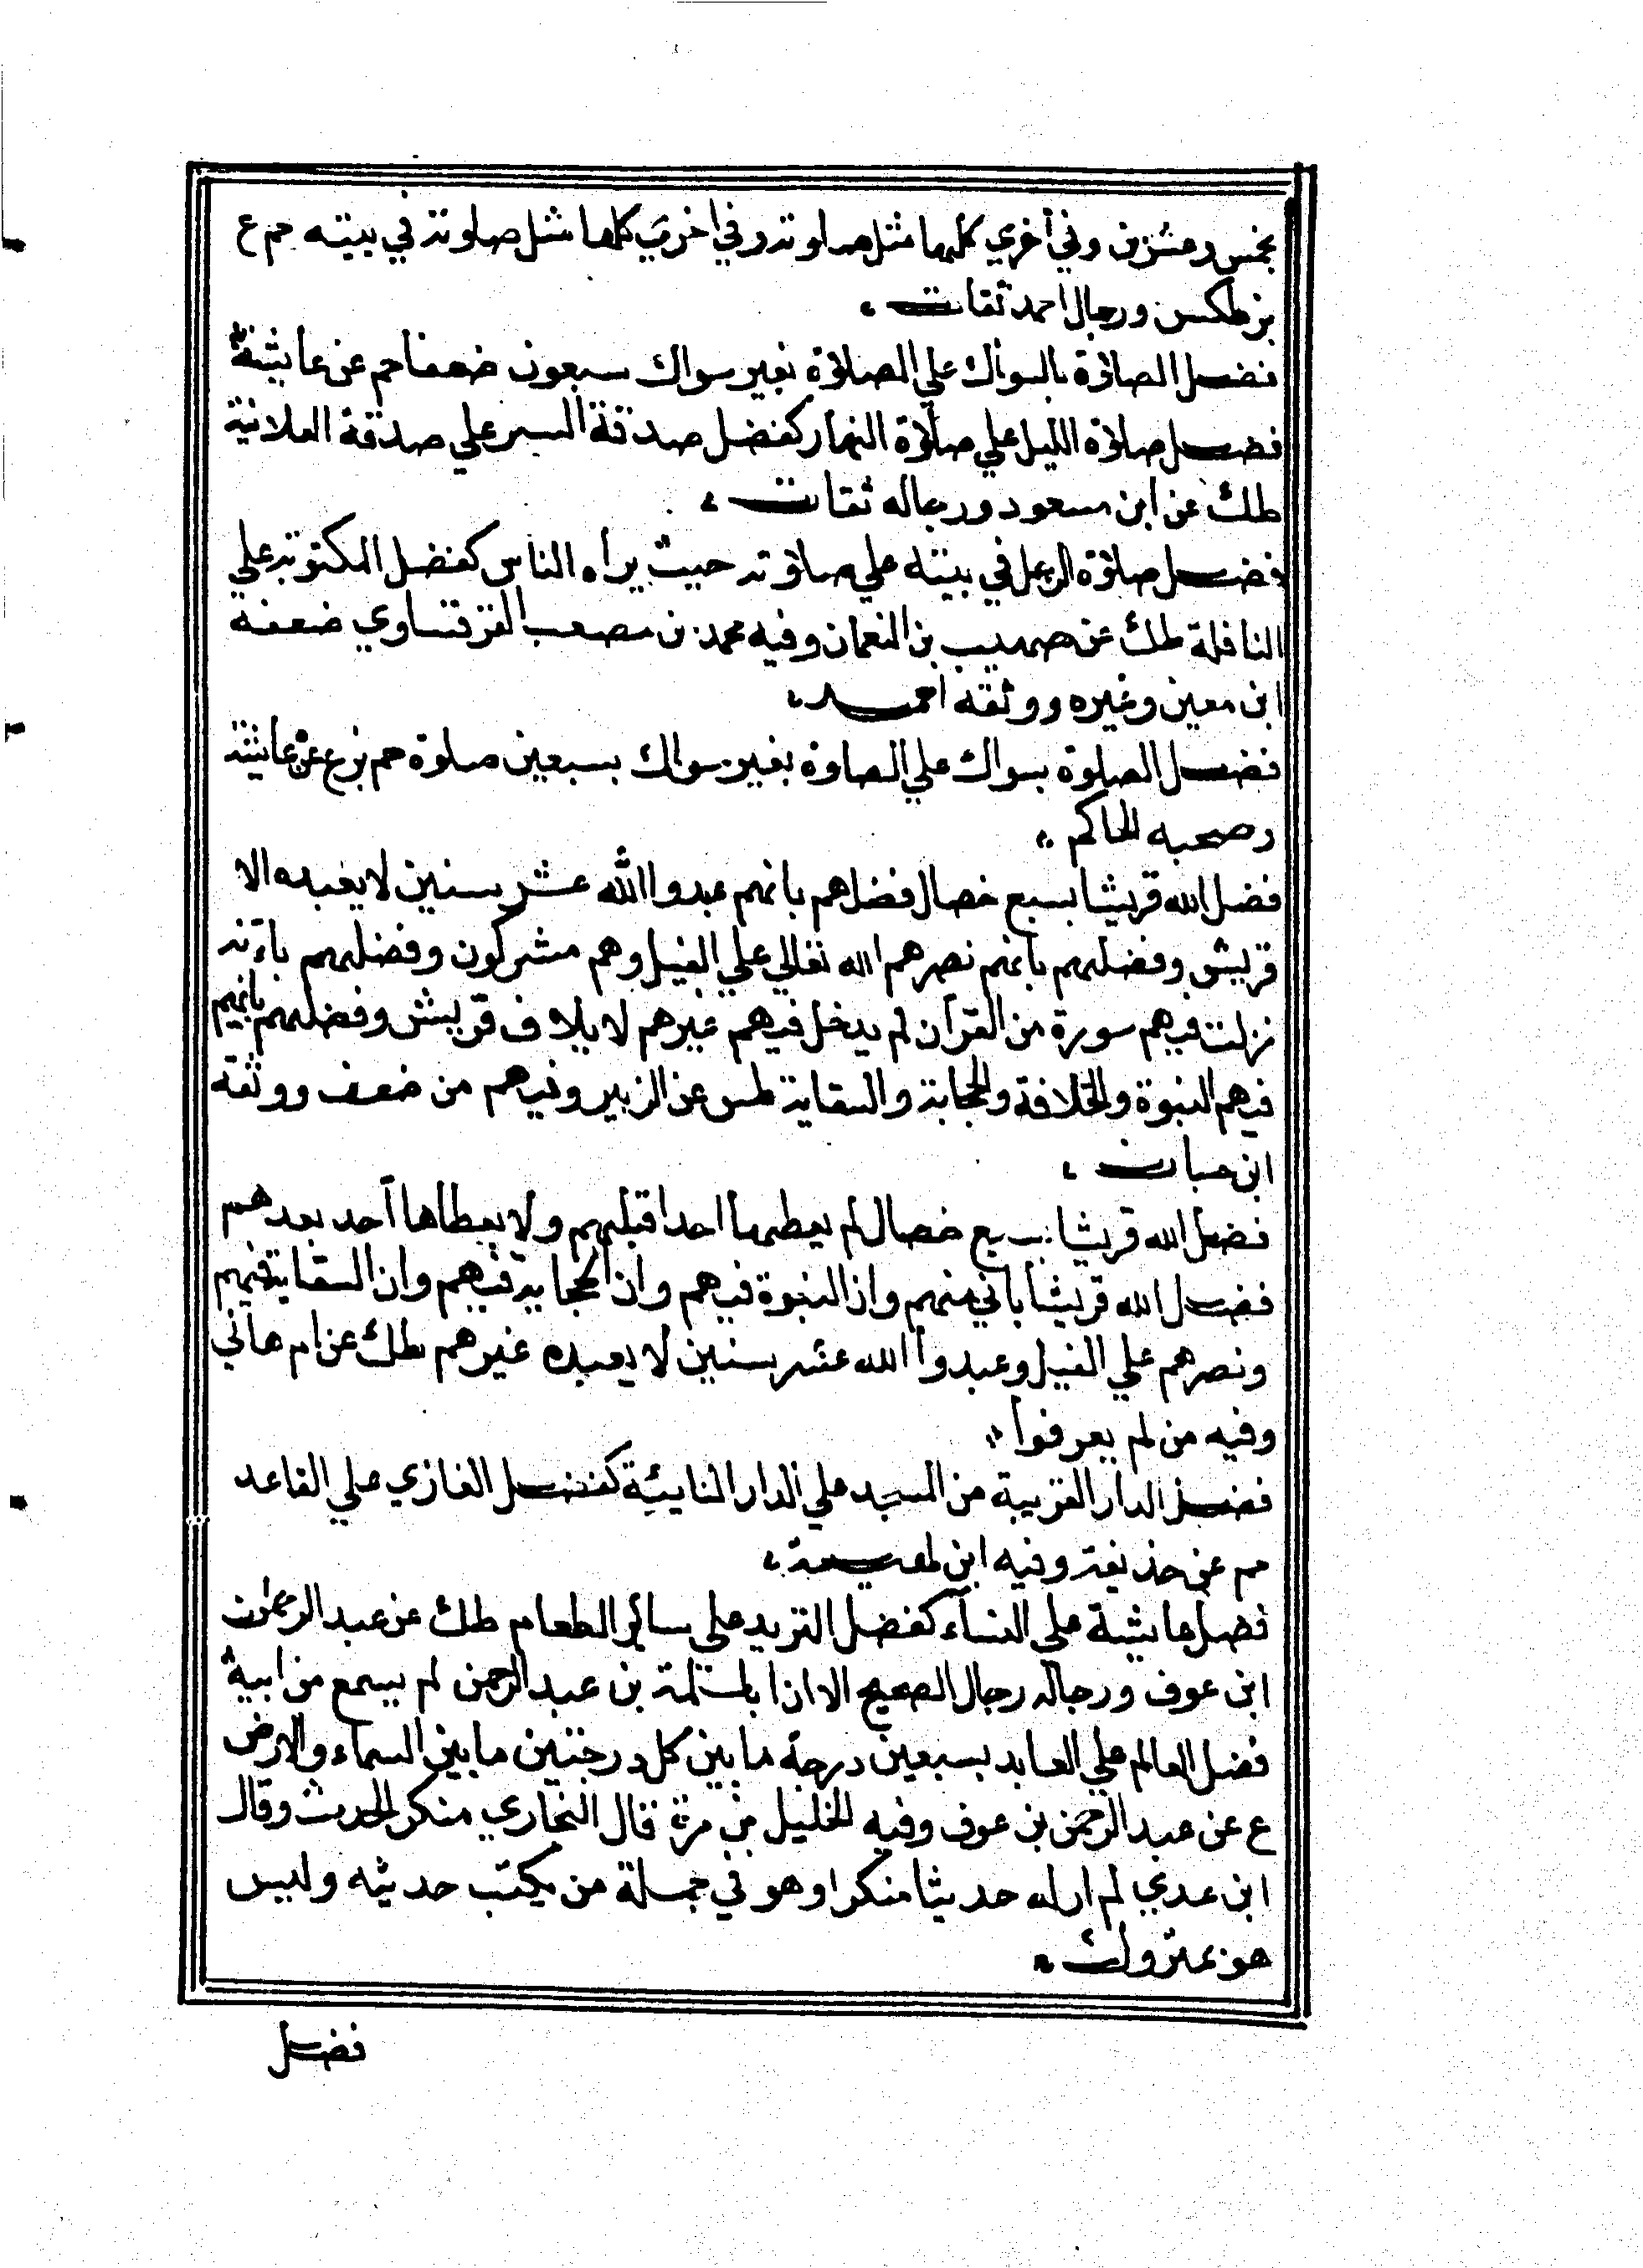 بخمس وعشرين وفي أخري كلها مثل صلوته وفي اخري كلها مثل صلوته في بيته حم ع
بز طكس ورجال احمد ثقات
فضل الصلاة بالسواك علي الصلاة بغير سواك سبعون ضعفا حم عن عايشة
فضل صلاة الليل علي صلاة النهار كفضل صدقة السر علي صدقة العلانية
طك عن ابن مسعود ورجاله ثقات
فضل صلاة الرجل في بيته علي صلاوته حيث يراه الناس كفضل المكتوبة علي
النافلة طك عن صهيب بن النعمان وفيه محمد بن مصعب القرقساوي ضعفه
ابن معين وغيره ووثقه احمد
فضل الصلوة بسواك علي الصلوة بغير سواك بسبعين صلوة حم بز ع عن عايشة
وصححه الحاكم
فضل الله قريشا بسبع خصال فضلهم بانهم عبدوا الله عشر سنين لا يعبده الا
قريش وفضلهم بانهم نصرهم الله تعالي علي الفيل وهم مشركون وفضلهم بانه
نزلت فيهم سورة من القرآن لم يدخل فيهم غيرهم لايلاف قريش وفضلهم بانهم
فيهم النبوة والخلافة والحجابة والسقاية طس عن الزبير وفيهم من ضعف ووثقه
ابن حبان
فضل الله قريشا بسبع خصال لم يعطها احدا قبلهم ولا يعطاها أحد بعدهم
فضل الله قريشا باني منهم وان النبوة فيهم وان الحجابة فيهم وان السقاية فيهم
ونصرهم علي الفيل وعبدوا الله عشر سنين لا يعبده غيرهم طك عن ام هاني
وفيه من لم يعرفوا
فضل الدار القريبة من المسجد علي الدار النايئة كفضل الغازي علي القاعد
حم عن حذيفة وفيه ابن لهيعة
فضل عايشة علي النساء كفضل الثريد علي سائر الطعام طك عن عبد الرحمن
ابن عوف ورجاله رجال الصحيح الا ان ابا سلمة بن عبد الرحمن لم يسمع من ابيه
فضل العالم علي العابد بسبعين درجة ما بين كل درجتين ما بين السماء والارض
ع عن عبد الرحمن بن عوف وفيه الخليل بن مرة قال البخاري منكر الحديث وقال
ابن عدي لم ار له حديثا منكرا وهو في جملة من يكتب حديثه وليس
هو بمتروك
فضل